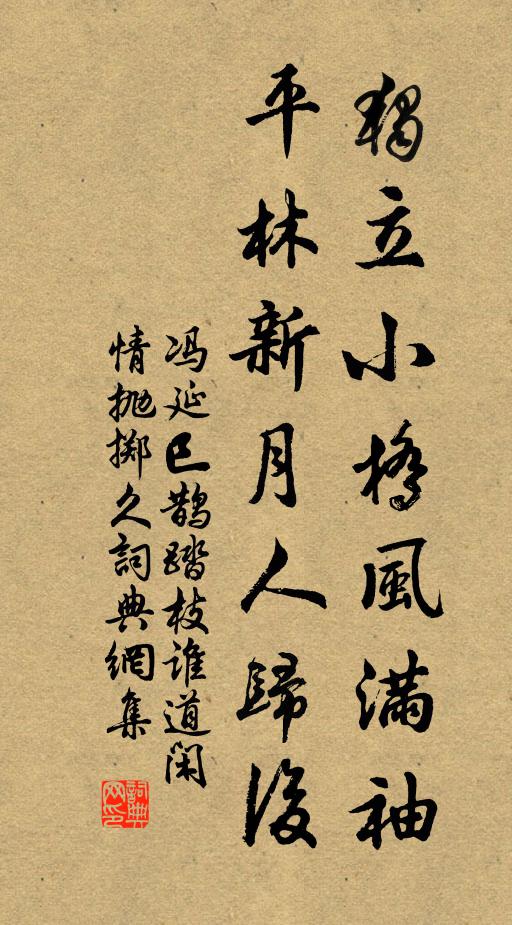 獨立小橋風滿袖
平林新月人歸後
冯延巳鹊踏枝谁道闲
情抛掷久詞典網集
詞典网印